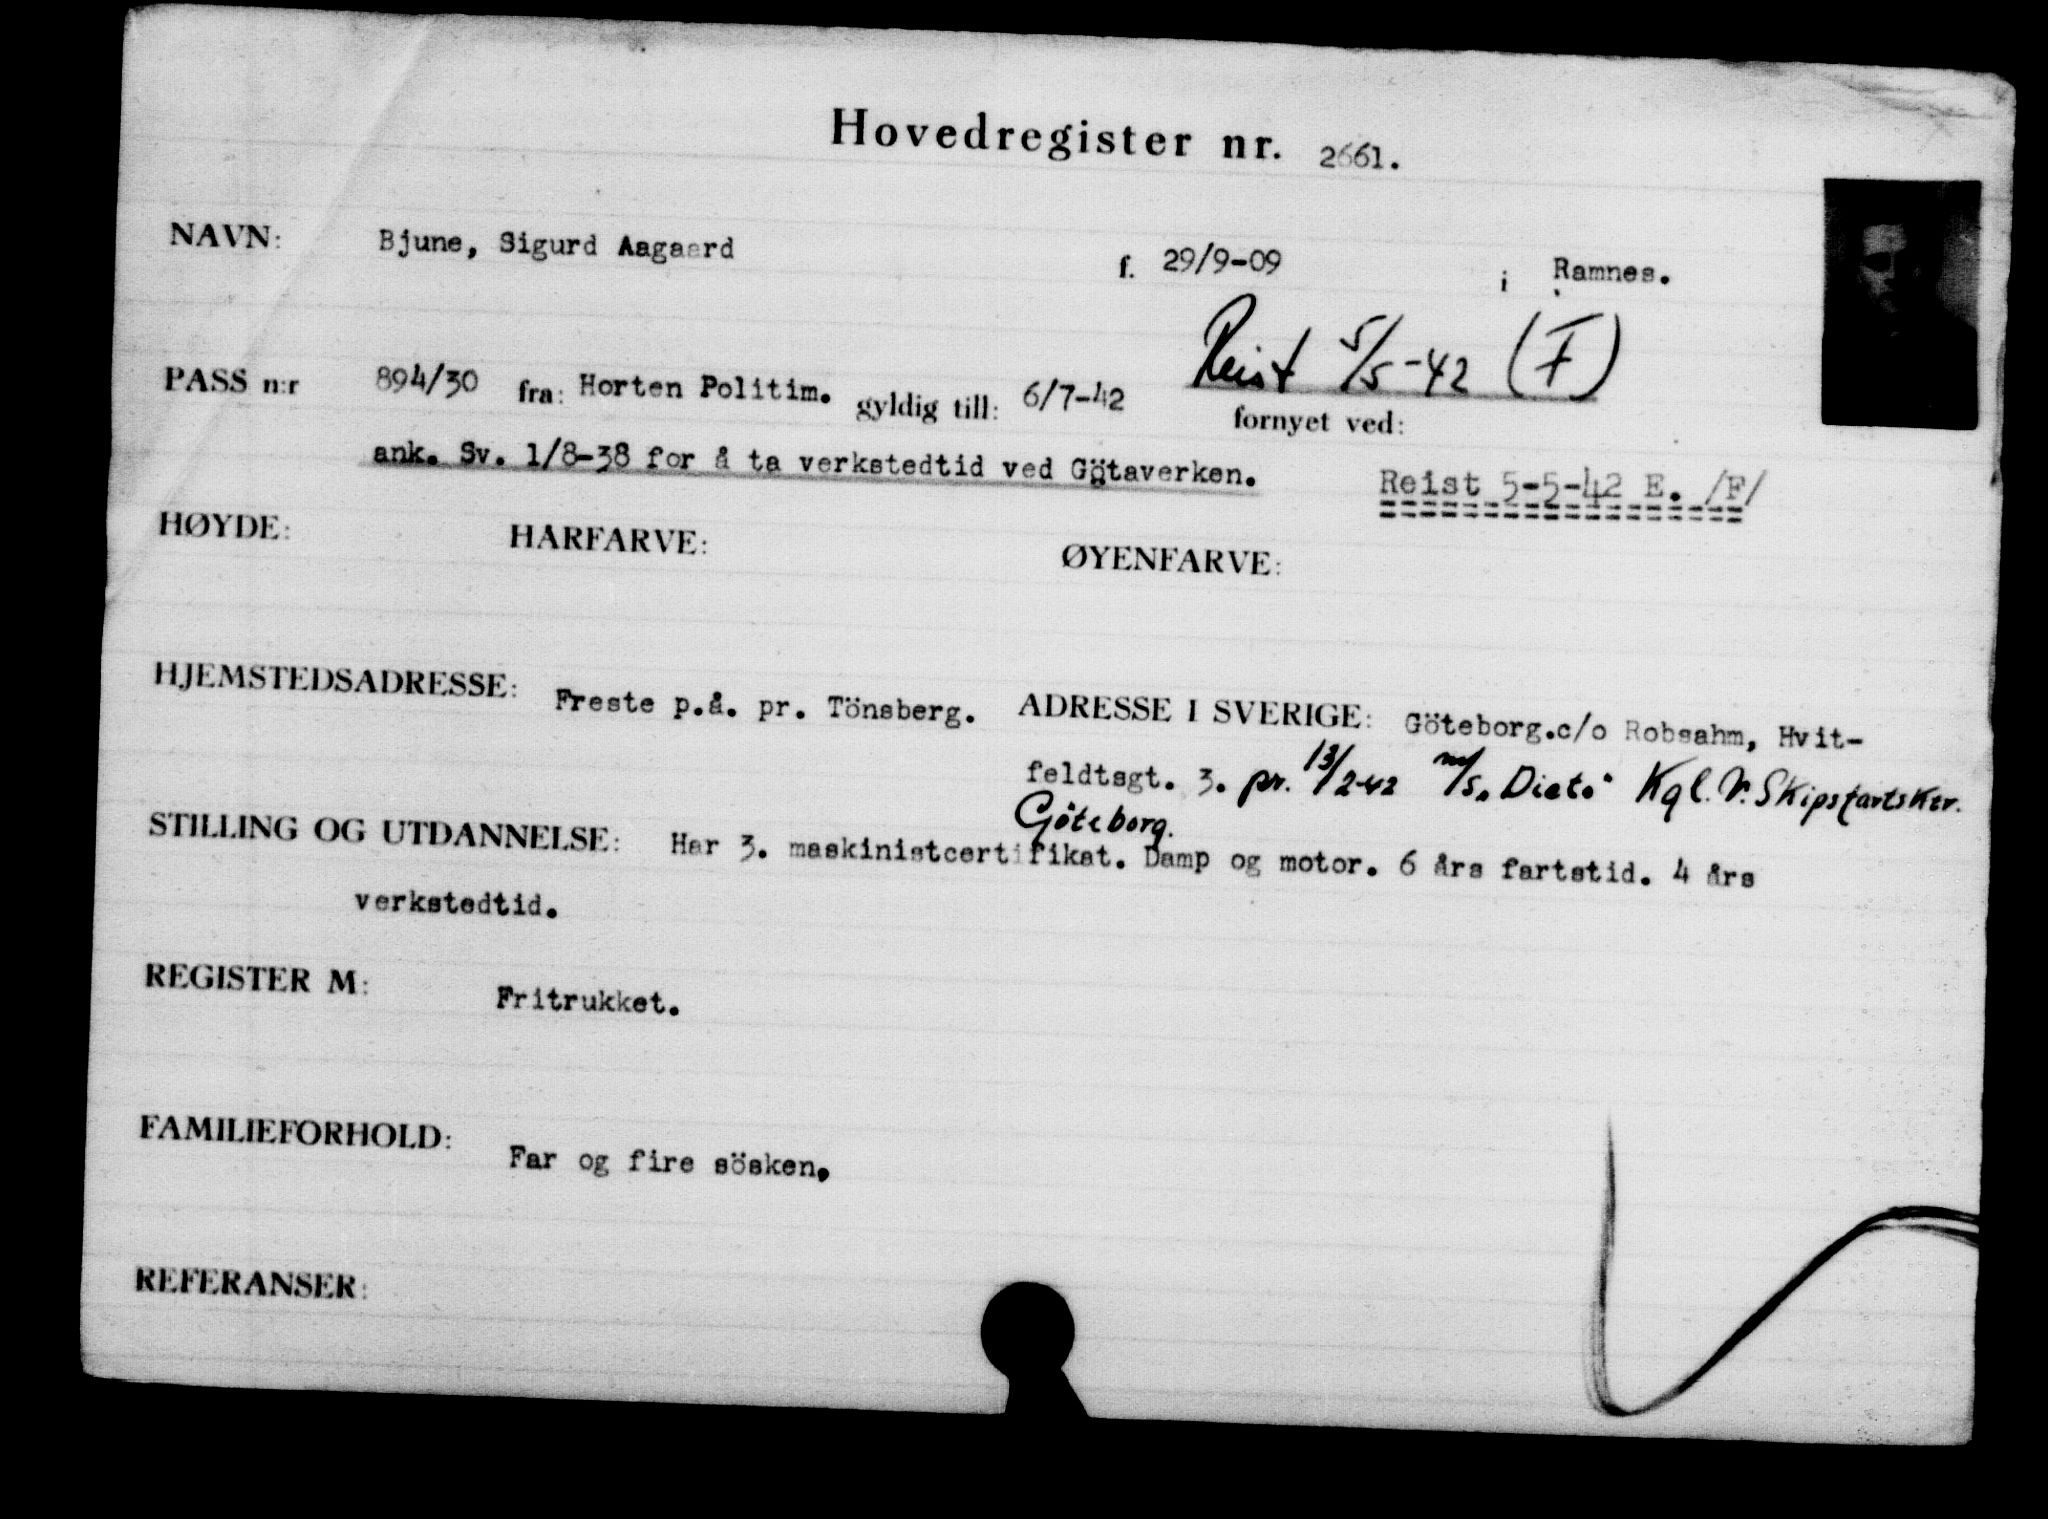 Hovedregister nr. 2661.
NAVN: Bjune, Sigurd Aagaard f. 29/9-09 i Ramnes.
Reist 5/5-42 (F)
PASS n:r 894/30 fra: Horten Politim. gyldig till: 6/7-42 fornyet ved:
ank. Sv. 1/8-38 for å ta verkstedtid ved Götaverken.
Reist 5-5-42 E. /F/
HØYDE: HÅRFARVE: ØYENFARVE:
HJEMSTEDSADRESSE: Freste p.å. pr. Tönsberg. ADRESSE I SVERIGE: Göteborg.c/o Robsahm, Hvit-
feldtsgt. 3. pr. 13/2-42 m/s "Dicto" Kgl. N. Skipsfartsktr.
Göteborg.
STILLING OG UTDANNELSE: Har 3. maskinistcertifikat. Damp og motor. 6 års fartstid. 4 års
verkstedtid.
REGISTER M: Fritrukket.
FAMILIEFORHOLD: Far og fire sösken.
REFERANSER: